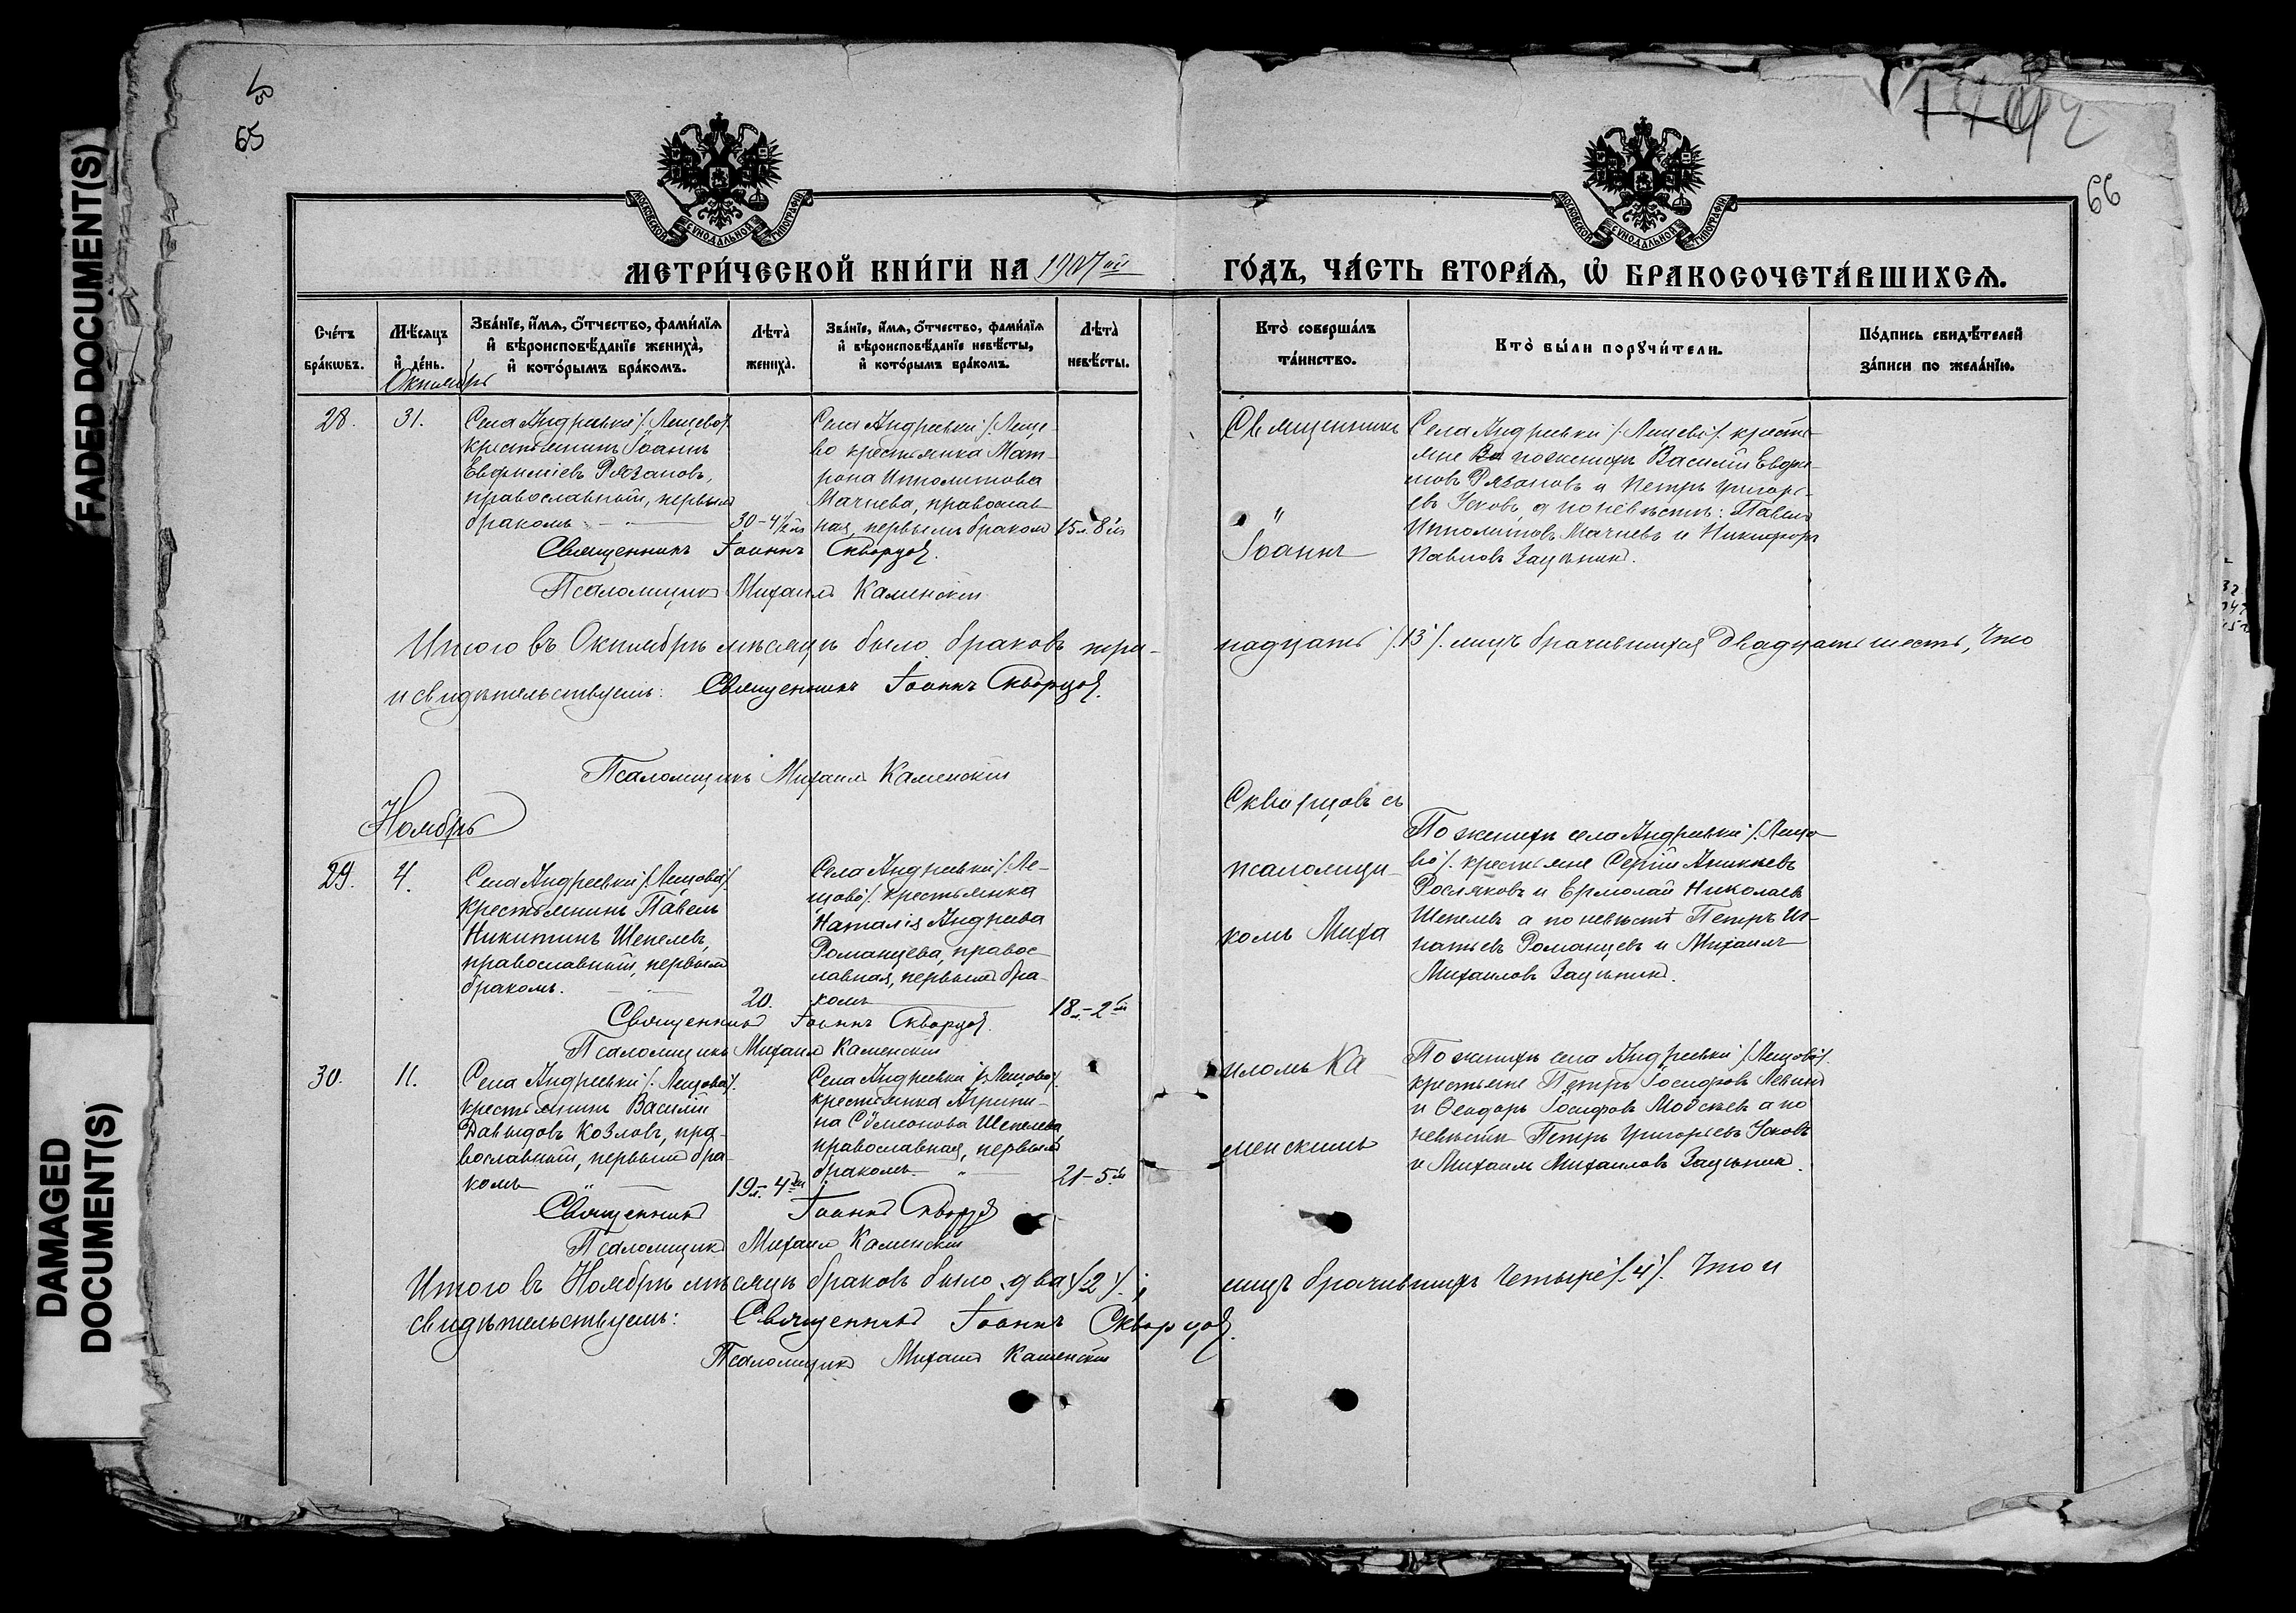 65
66
FADED DOCUMENT(S)
DAMAGED DOCUMENT(S)
МОСКОВСКОЙ СУНОДАЛЬНОЙ ТИПОГРАФІИ
МОСКОВСКОЙ СУНОДАЛЬНОЙ ТИПОГРАФІИ
МЕТРИ́ЧЕСКОЙ КНИ́ГИ НА 1907ой ГО́ДЪ, ЧА́СТЬ ВТОРА́Ѧ, Ѽ БРАКОСОЧЕТА́ВШИХСѦ.
Сче́тъ бра́кѡвъ.
Мѣ́сяцъ и҆ де́нь.
Зва́нїе, и҆́мѧ, ѻ҆́тчество, фами́лїѧ и҆ вѣроисповѣ́данїе жениха̀, и҆ кото́рымъ бра́комъ.
Лѣта̀ жениха̀.
Зва́нїе, и҆́мѧ, ѻ҆́тчество, фами́лїѧ и҆ вѣроисповѣ́данїе невѣ́сты, и҆ кото́рымъ бра́комъ.
Лѣта̀ невѣ́сты.
Кто̀ соверша́лъ та́инство.
Кто̀ бы́ли порꙋчи́тели.
По́дпись свидѣ́телей за́писи по жела́нїю.
Октябрь
28.
31.
Села Андреевки /. Лещево/.
крестьянинъ Іоаннъ
Евфиміевъ Рязановъ,
православный, первымъ
бракомъ
30-4½ м
Села Андреевки /. Леще-
во крестьянка Мат-
рона Ипполитова
Мачнева, православ-
ная, первымъ бракомъ
15л. 8 м
Священникъ
Іоаннъ
Села Андреевки /. Лещево/. крестья-
не по женихѣ Василій Евфи-
мовъ Рязановъ и Петръ Григорь-
евъ Усковъ, а по невѣстѣ: Павелъ
Ипполитовъ Мачневъ и Никифоръ
Павловъ Зацѣпинъ.
Священникъ Іоаннъ Скворцовъ.
Псаломщикъ Михаилъ Каменскій
Итого въ Октябрѣ мѣсяцѣ было браковъ три-
надцать /. 13 /. лицъ брачившихся двадцать шесть, Что
и свидѣтельствуемъ: Священникъ Іоаннъ Скворцовъ.
Псаломщикъ Михаилъ Каменскій
Скворцовъ съ
Ноябрь
29.
4.
Села Андреевки /. Лещово/.
крестьянинъ Павелъ
Никитинъ Шепелевъ,
православный, первымъ
бракомъ.
20.
Села Андреевки /. Ле-
щово/. крестьянка
Наталія Андреева
Романцева, правос-
лавная, первымъ бра-
комъ
18л.-2 м
псаломщи-
комъ Миха
По женихѣ села Андреевки /. Лещо-
во/. крестьяне Сергій Аникіевъ
Росляковъ и Ермолай Николаевъ
Шепелевъ а по невѣстѣ Петръ Иг-
натьевъ Романцевъ и Михаилъ
Михаиловъ Зацѣпинъ.
Священникъ Іоаннъ Скворцовъ.
Псаломщикъ Михаилъ Каменскій
30.
11.
Села Андреевки /. Лещова/.
крестьянинъ Василій
Давыдовъ Козловъ, пра-
вославный, первымъ бра-
комъ
19л.-4 м
Села Андреевки /. Лещово/.
крестьянка Агрипи-
на Сѵмеонова Шепелева
православная, первымъ
бракомъ
21-5 м
иломъ Ка
менскимъ
По женихѣ села Андреевки /. Лещово/.
крестьяне Петръ Іосифовъ Левинъ
и Ѳеодоръ Іосифовъ а по
невѣстѣ Петръ Григорьевъ Усковъ
и Михаилъ Михаиловъ Зацѣпинъ.
Священникъ Іоаннъ Скворцовъ
Псаломщикъ Михаилъ Каменскій
Итого въ Ноябрѣ мѣсяцѣ браковъ было два /. 2 /. ;
лицъ брачившихъ четыре /. 4 /. Что и
свидѣтельствуемъ: Священникъ Іоаннъ Скворцовъ.
Псаломщикъ Михаилъ Каменскій